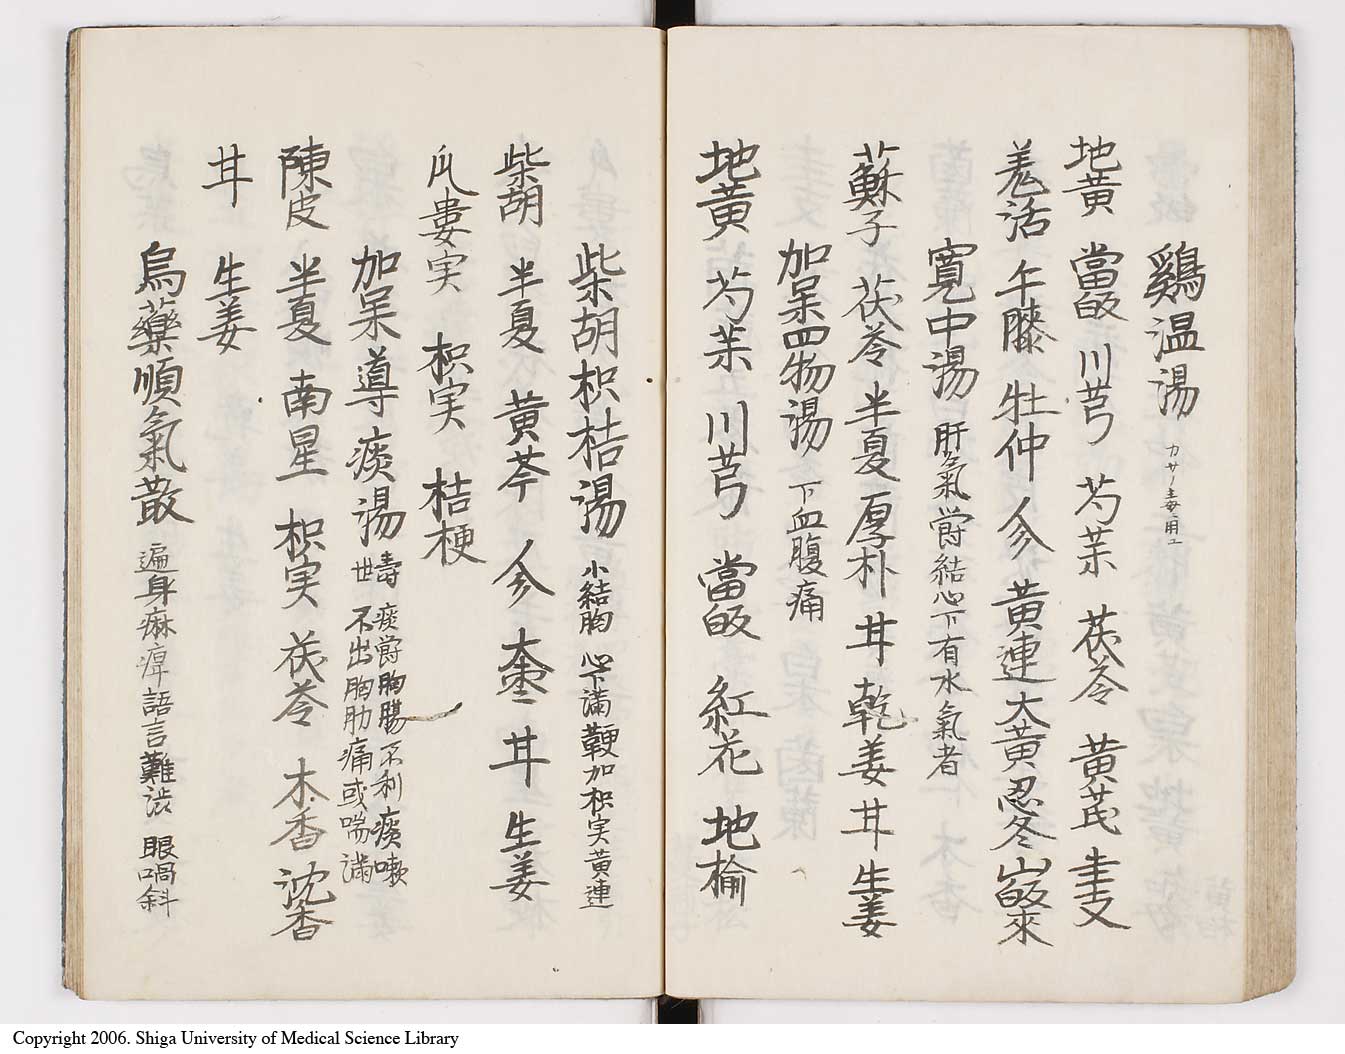 鷄温湯 カサノ毒ニ用エ
地黄 當皈 川芎 芍薬 茯苓 黄芪 圭支
羌活 午膝 牡仲 人参 黄連 大黄 忍冬 山皈來
寛中湯 肝氣欝結心下有水氣者
蘇子 茯苓 半夏 厚朴 甘 乾姜 甘 生姜
加味四物湯 下血腹痛
地黄 芍薬 川芎 當皈 紅花 地楡
柴胡枳桔湯 小結胸 心下満鞕加枳実黄連
柴胡 半夏 黄芩 人参 大棗 甘 生姜
瓜婁実 枳実 桔梗
加味導痰湯 壽世 痰欝胸膈不利痰嗽
不出胸肋痛或喘満
陳皮 半夏 南星 枳実 茯苓 木香 沈香
甘 生姜
烏藥順氣散 遍身痳痺語言難澁 眼喎斜
Copyright 2006. Shiga University of Medical Science Library